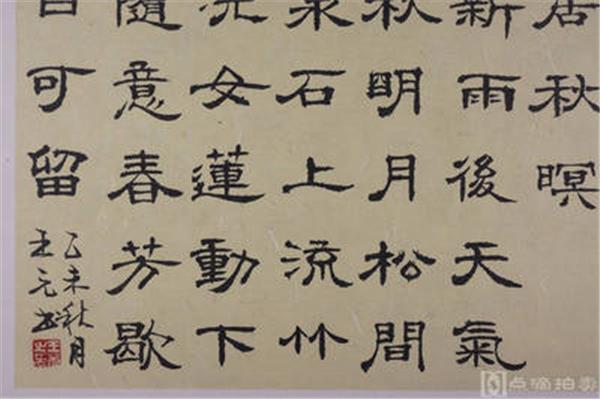 居秋暝
新雨後天氣
秋明月松間
泉石上流竹
浣女蓮動下
隨意春芳歇
自可留
乙未秋月
王元书
点滴拍卖